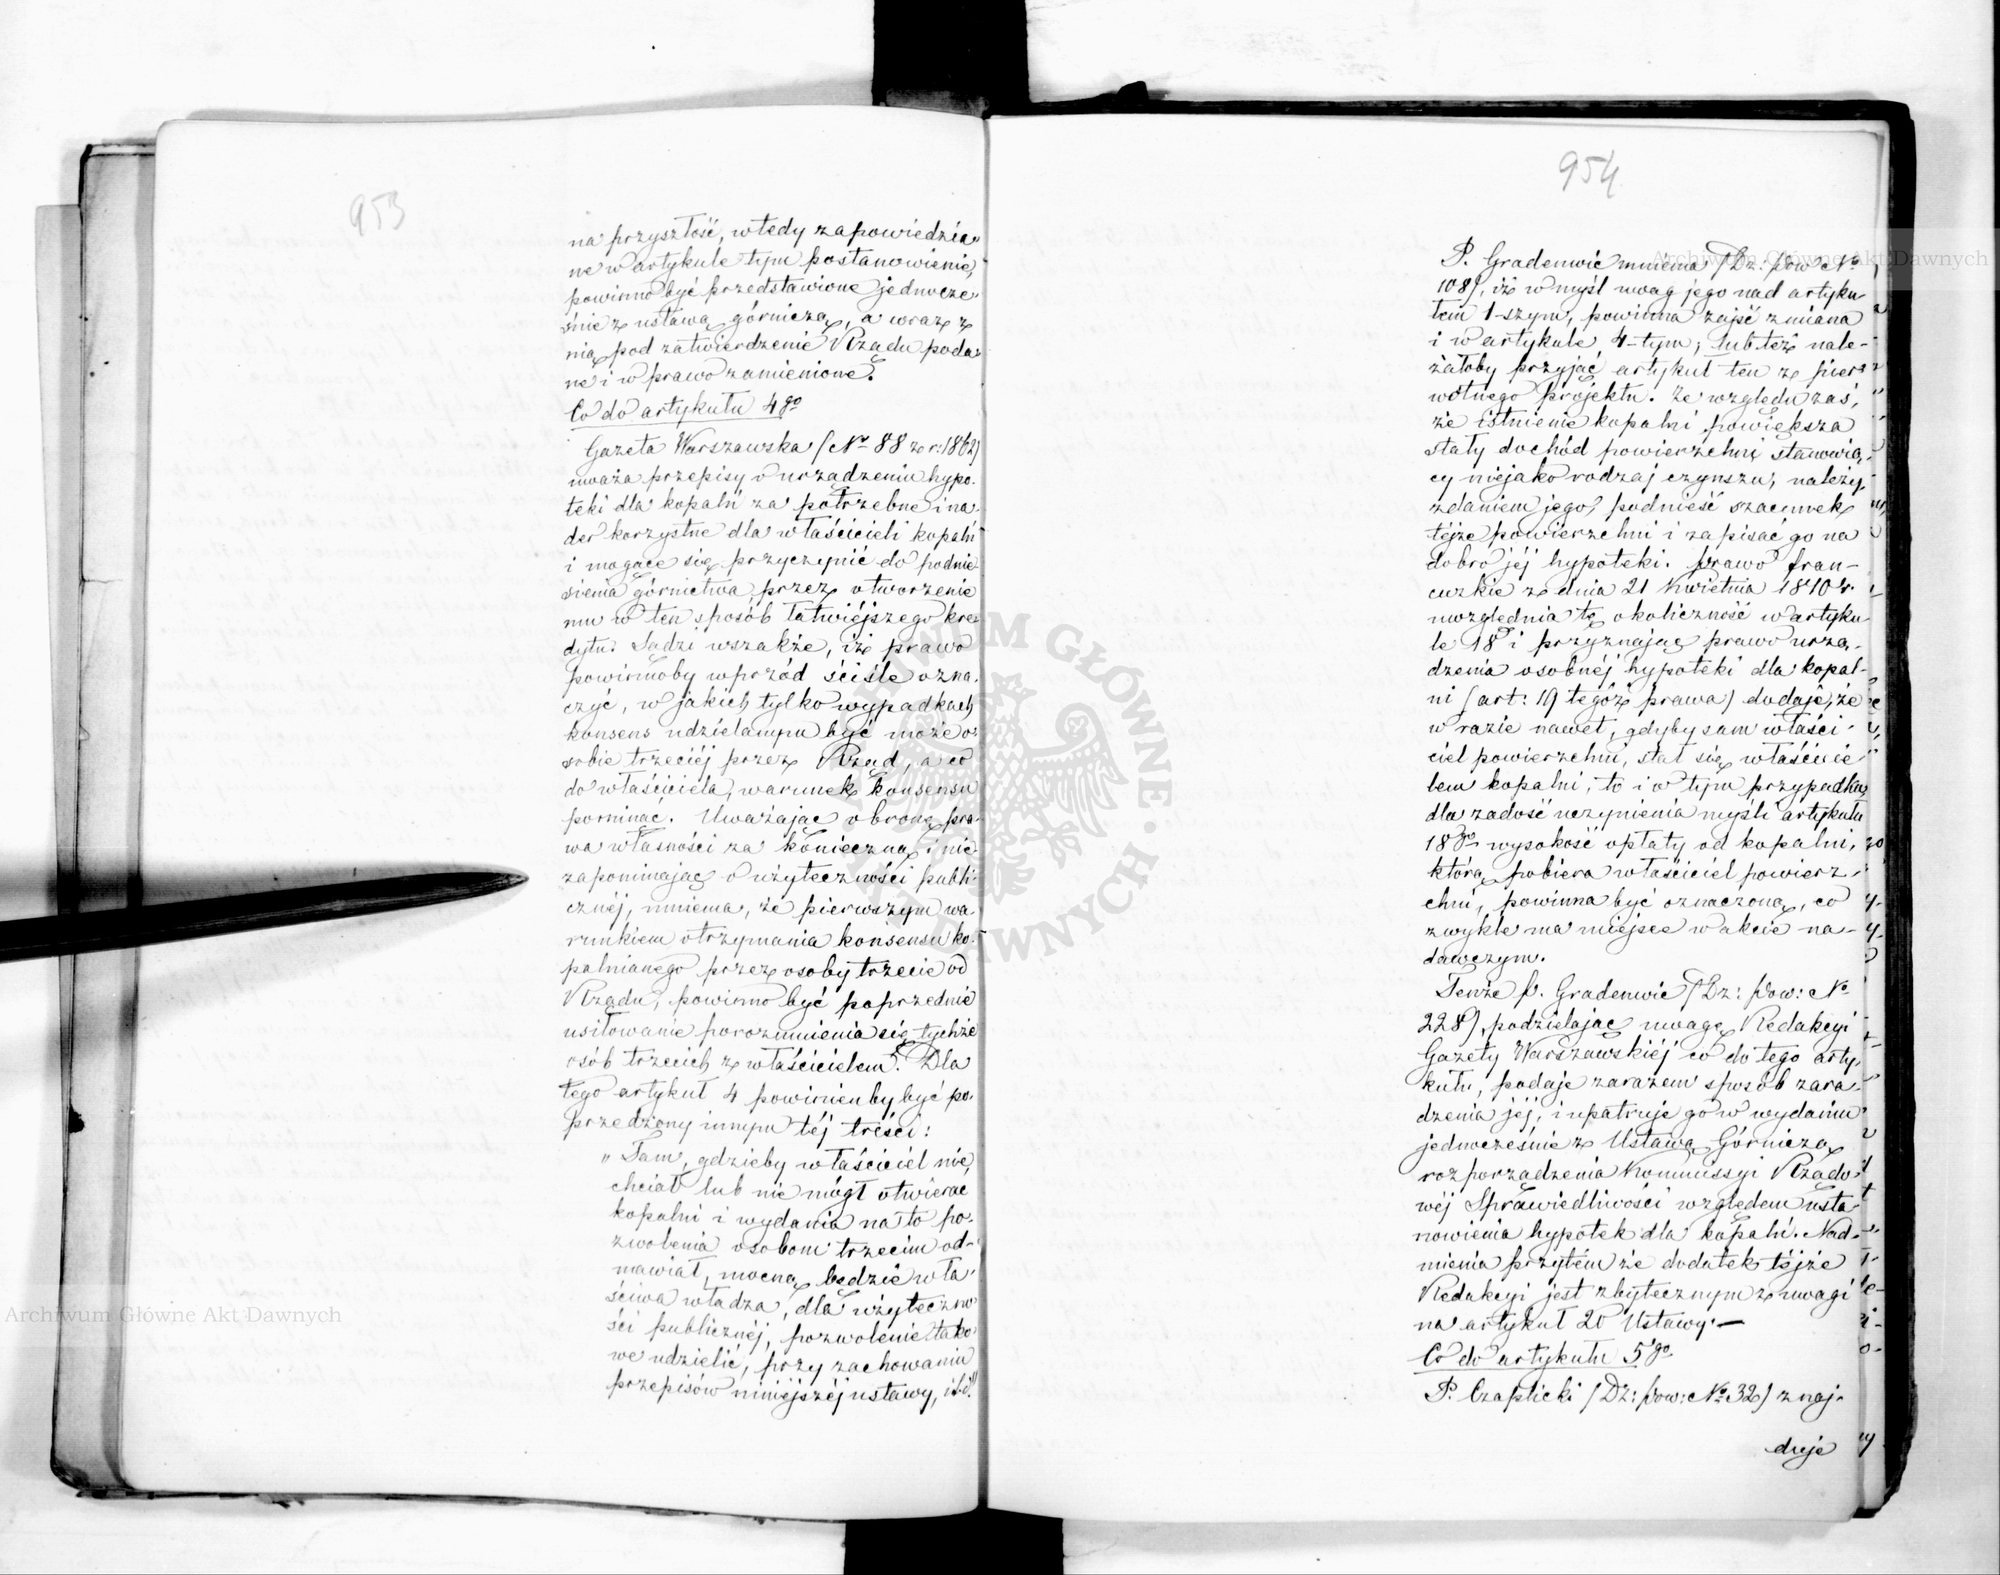 953
na przyszłość, wtedy zapowiedzia-
ne w artykule tym postanowienie,
powinno być przedstawione jednocze-
śnie z ustawą górniczą, a wraz z
nią pod zatwierdzenie Rządu poda-
ne i w prawo zamienione.
Co do artykułu 4go
Gazeta Warszawska (Nr 88 z r: 1862)
uważa przepisy o urządzeniu hypo-
teki dla kopalń za potrzebne i na-
der korzystne dla właścicieli kopalń
i mogące się przyczynić do podnie-
sienia górnictwa przez otworzenie
mu w ten sposób łatwiéjszego kre-
dytu. Sądzi wszakże, iż prawo
powinnoby wprzód ściśle ozna-
czyć, w jakich tylko wypadkach
konsens udzielanym być może o-
sobie trzeciéj przez Rząd, a co
do właściciela, warunek konsensu
pominąć. Uważając obronę pra-
wa własności za konieczną i nie
zapominając o użyteczności publi-
cznéj, mniema, że pierwszym wa-
runkiem otrzymania konsensu ko-
palnianego przez osoby trzecie od
Rządu, powinno być poprzednie
usiłowanie porozumienia się tychże
osób trzecich z właścicielem. Dla
tego artykuł 4 powinien by być po-
przedzony innym téj treści:
„Tam, gdzieby właściciel nie
chciał lub nie mógł otwierać
kopalni i wydania na to po-
zwolenia osobom trzecim od-
mawiał, mocną będzie wła-
ściwa władza, dla użyteczno-
ści publicznéj, pozwolenie tako-
we udzielić, przy zachowaniu
przepisów niniejszéj ustawy, itd."
954
P. Gradenwic mniema (Dz: pow No
108), iż w myśl uwag jego nad artyku-
łem 1-szym, powinna zajść zmiana
i w artykule 4-tym; lub też nale-
żałoby przyjąć artykuł ten z pier-
wotnego projektu. Ze względu zaś,
że istnienie kopalni powiększa
stały dochód powierzchni stanowią-
cy niejako rodzaj czynszu, należy,
zdaniem jego, podnieść szacunek
téjże powierzchni i zapisać go na
dobro jéj hypoteki. Prawo fran-
cuzkie z dnia 21 Kwietnia 1810 r.
uwzględnia tę okoliczność w artyku-
le 18 i przyznając prawo urzą-
dzenia osobnéj hypoteki dla kopal-
ni (art: 19 tegóż prawa) dodaje, że
w razie nawet, gdyby sam właści-
ciel powierzchni, stał się właścicie-
lem kopalni, to i w tym przypadku,
dla zadość uczynienia myśli artykułu
18go wysokość opłaty od kopalni,
którą pobiera właściciel powierz-
chni, powinna być oznaczoną, co
zwykle ma miejsce w akcie na-
dawczym.
Tenże p. Gradenwic (Dz: pow: No
228), podzielając uwagę Redakcyi
Gazety Warszawskiéj co do tego arty-
kułu, podaje zarazem sposób zara-
dzenia jéj, i upatruje go w wydaniu
jednocześnie z Ustawą Górniczą
rozporządzenia Kommissyi Rządo-
wéj Sprawiedliwości względem usta-
nowienia hypotek dla kopalń. Nad-
mienia przytém że dodatek téjże
Redakcyi jest zbytecznym z uwagi
na artykuł 20 Ustawy.—
Co do artykułu 5go
P. Czaplicki (Dz: pow: No 32) znaj-
duje
Archiwum Główne Akt Dawnych
Archiwum Główne Akt Dawnych
ARCHIWUM GŁÓWNE AKT DAWNYCH